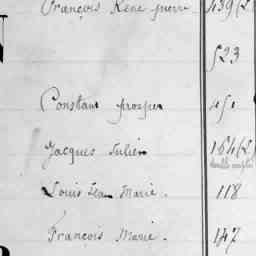 François René pierre 439(2)
523
Constant prosper 451
Jacques Julien 164(2)
Louis Jean Marie. 118
François Marie. 147